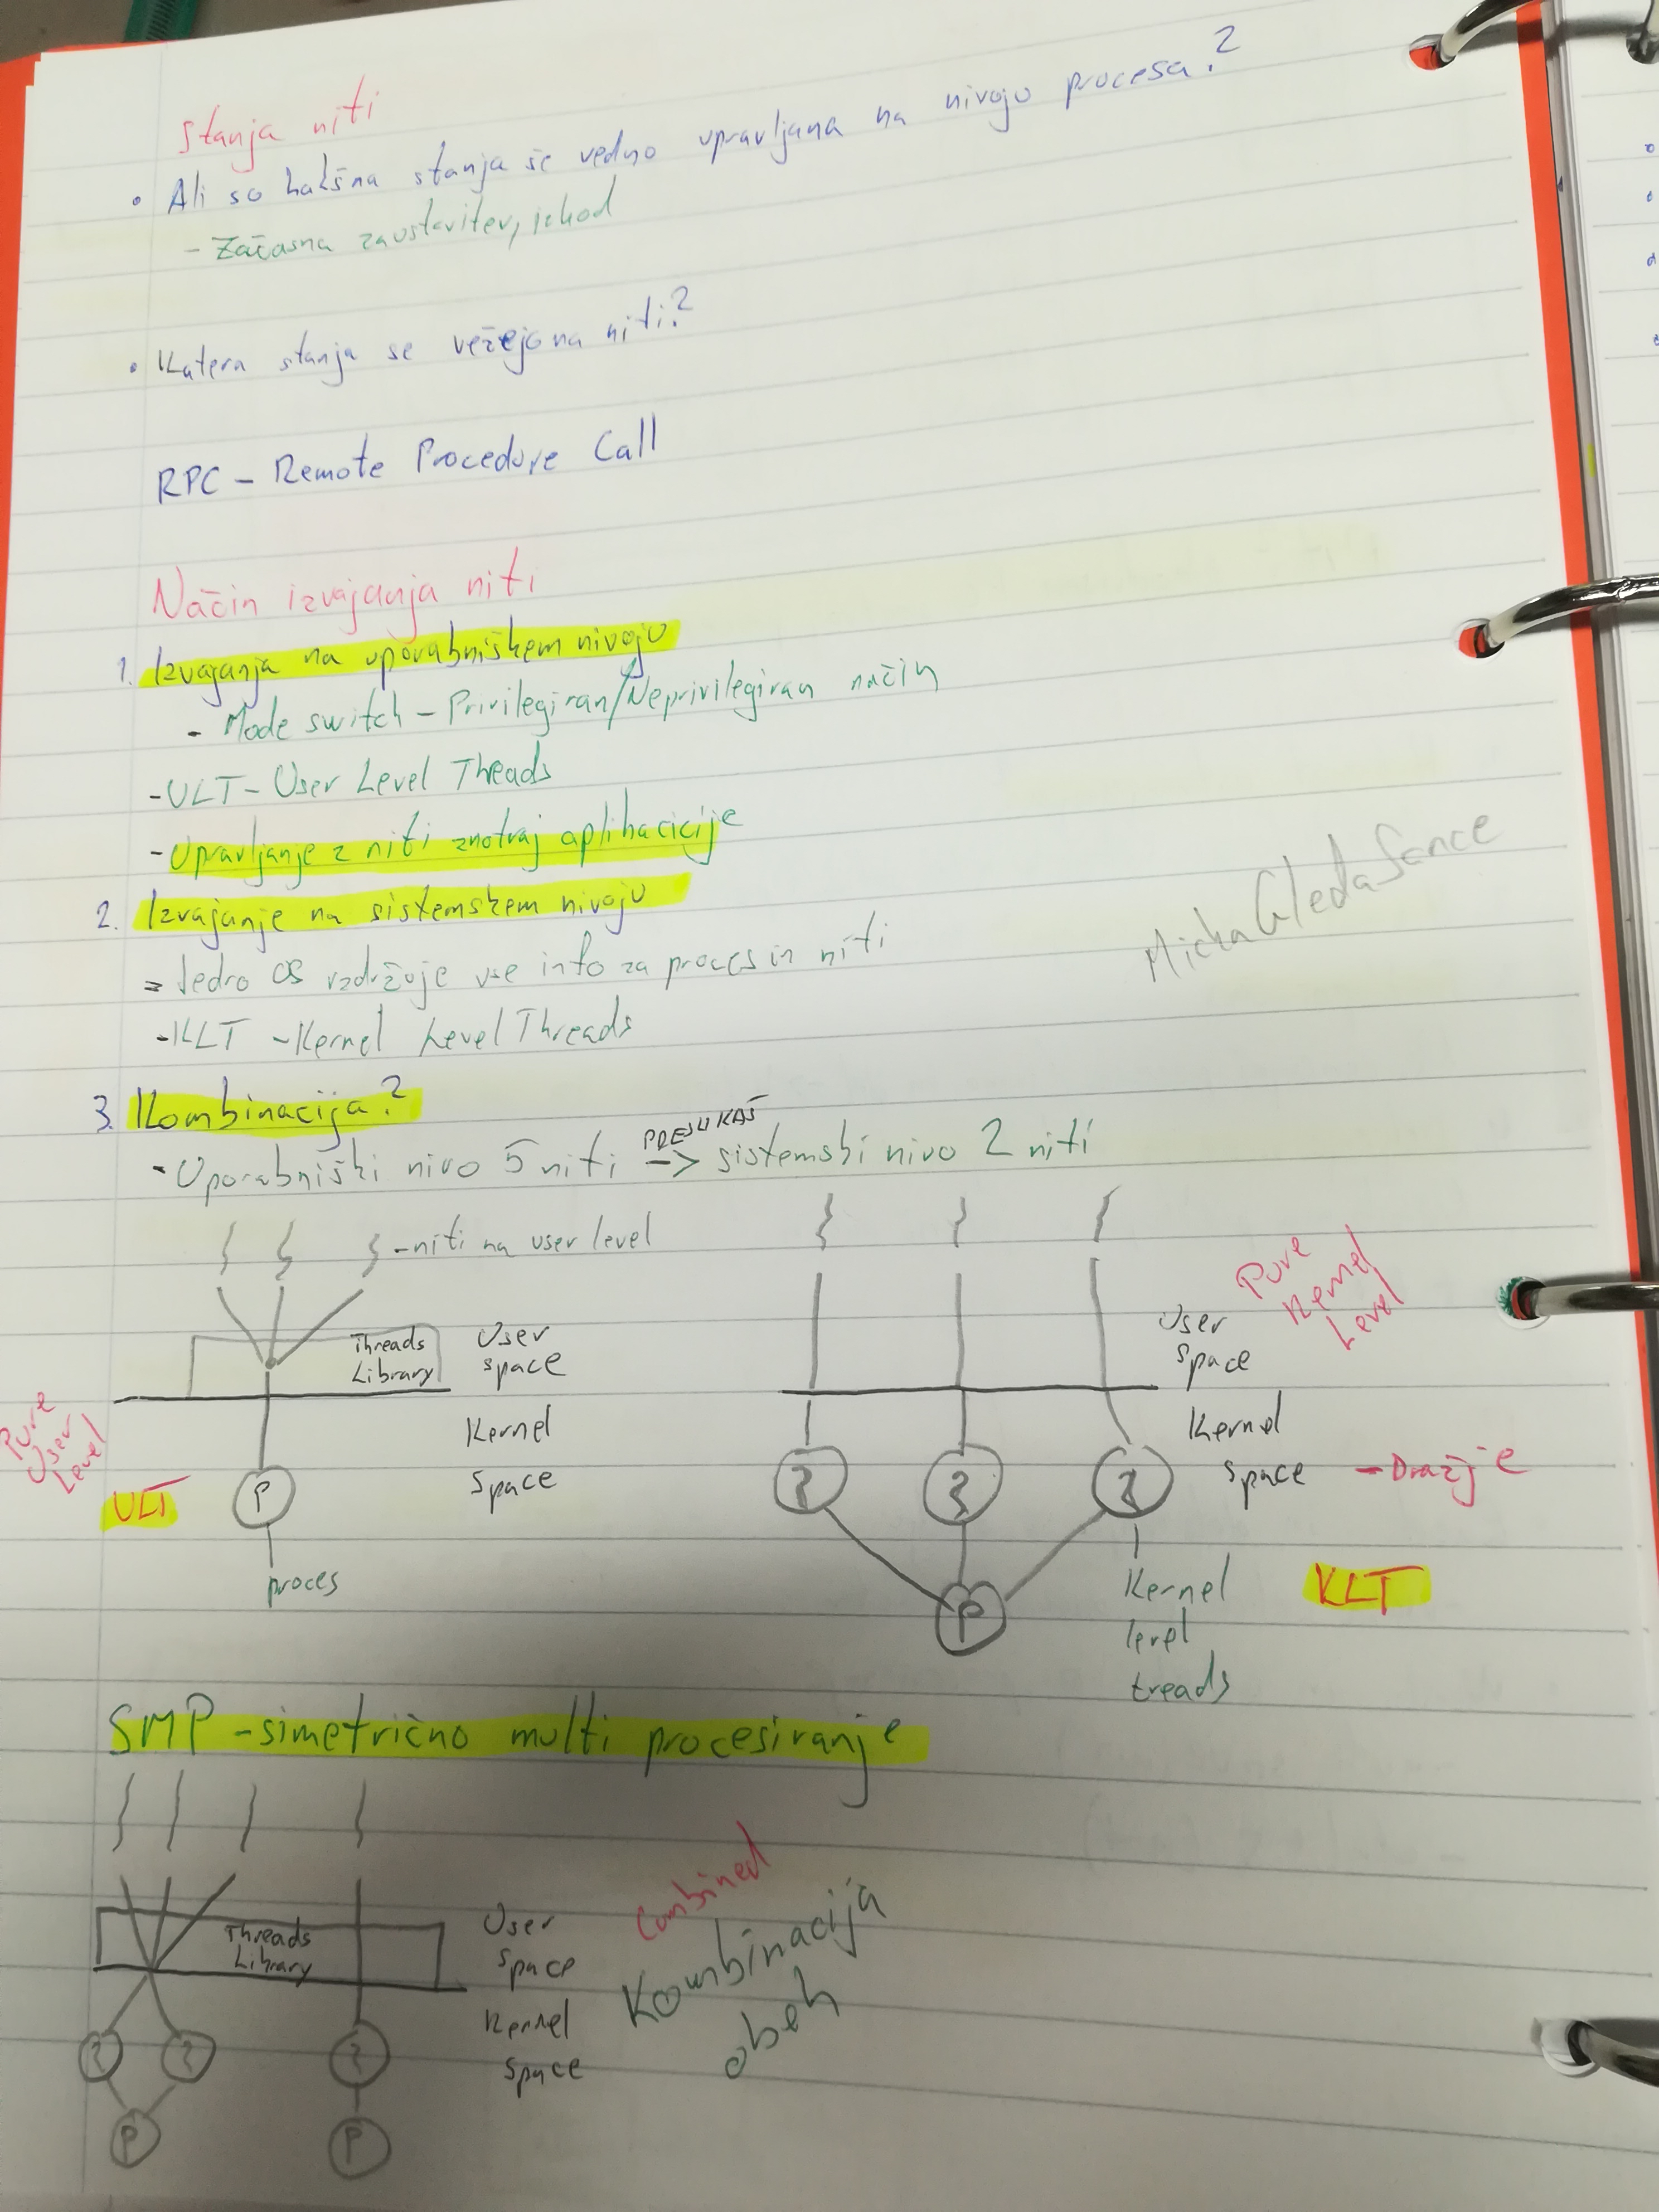 Stanja niti
• Ali so kakšna stanja še vedno upravljana na nivoju procesa?
- Začasna zaustavitev, izhod
• Katera stanja se vežejo na niti?
RPC - Remote Procedure Call
Način izvajanja niti
1. Izvajanja na uporabniškem nivoju
- Mode switch - Privilegiran/Neprivilegiran način
- ULT - User Level Threads
- Upravljanje z niti znotraj aplikacicije
2. Izvajanje na sistemskem nivoju
- Jedro OS vzdržuje vse info za proces in niti
- KLT - Kernel Level Threads
MichaGledaSonce
3. Kombinacija?
PRESLIKAŠ
- Uporabniški nivo 5 niti -> sistemski nivo 2 niti
- niti na user level
Threads
Library
User
space
Kernel
Space
Pure
User
Level
ULT
P
proces
Pure
Kernel
Level
User
space
Kernel
space - Dražje
P
Kernel
level
treads
KLT
SMP - simetrično multi procesiranje
Threads
Library
User
space
Kernel
space
Combined
Kombinacija
obeh
P
P